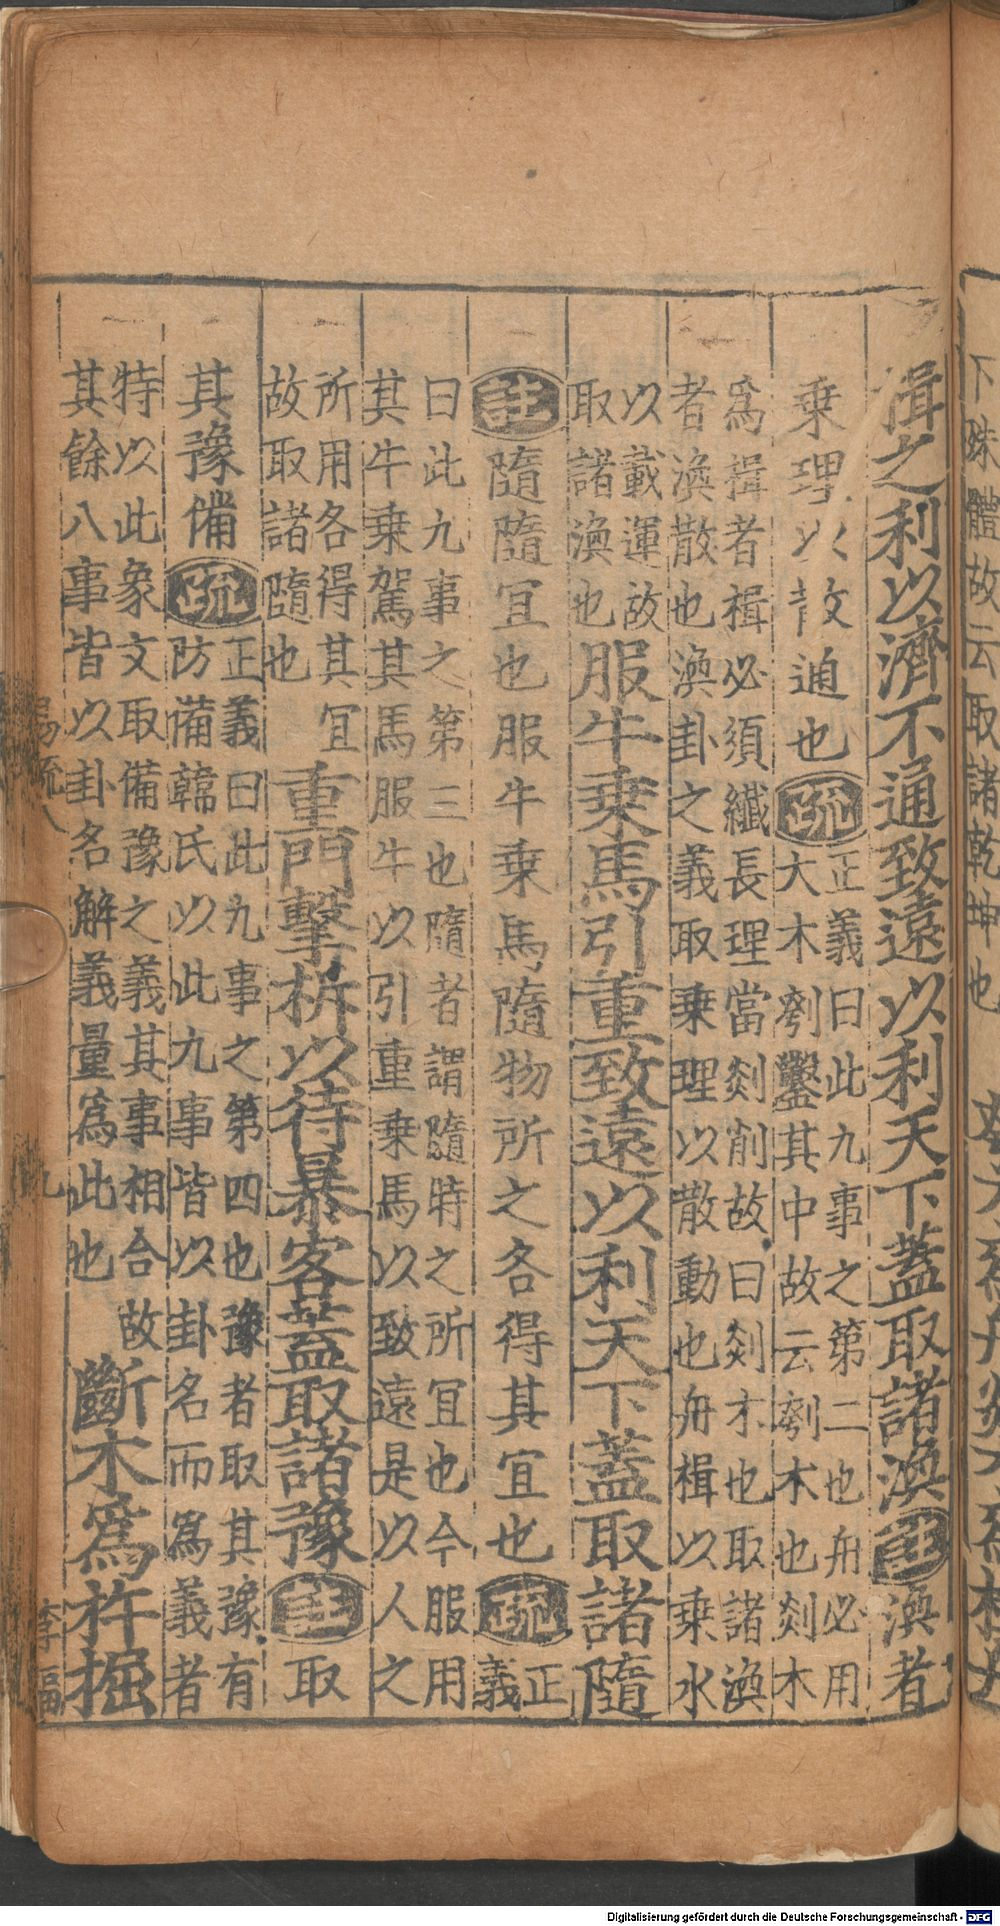 楫之利以濟不通致遠以利天下蓋取諸渙註渙者
乘理以散通也疏正義曰此九事之第二也舟必用
大木刳鑿其中故云刳木也剡木
爲楫者楫必須纖長理當剡削故曰剡木也取諸渙
者渙散也渙卦之義取乘理以散動也舟楫以乘水
以載運故
取諸渙也服牛乘馬引重致遠以利天下蓋取諸隨
註隨隨宜也服牛乘馬隨物所之各得其宜也疏正
義
曰此九事之第三也隨者謂隨時之所宜也今服用
其牛乘駕其馬服牛以引重乘馬以致遠是以人之
所用各得其宜
故取諸隨也重門擊柝以待暴客蓋取諸豫註取
其豫備疏正義曰此九事之第四也豫者取其豫有
防備韓氏以此九事皆以卦名而爲義者
特以此象文取備豫之義其事相合故
其餘八事皆以卦名解義量爲此也斷木爲杵掘
易疏八
九
李福
下殊體故云取諸乾坤也
Digitalisierung gefördert durch die Deutsche Forschungsgemeinschaft - DFG